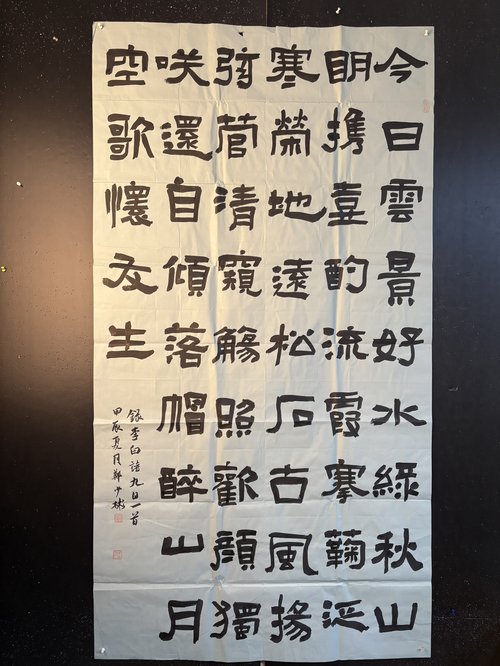 今日雲景好水綠秋山
眀携壺酌流霞搴鞠泛
寒榮地遠松石古風揚
弦菅清窺觴照歡顏獨
咲還自傾落帽醉山月
空歌懷友生
錄李白詩九日一首
甲辰夏月鄭少彬